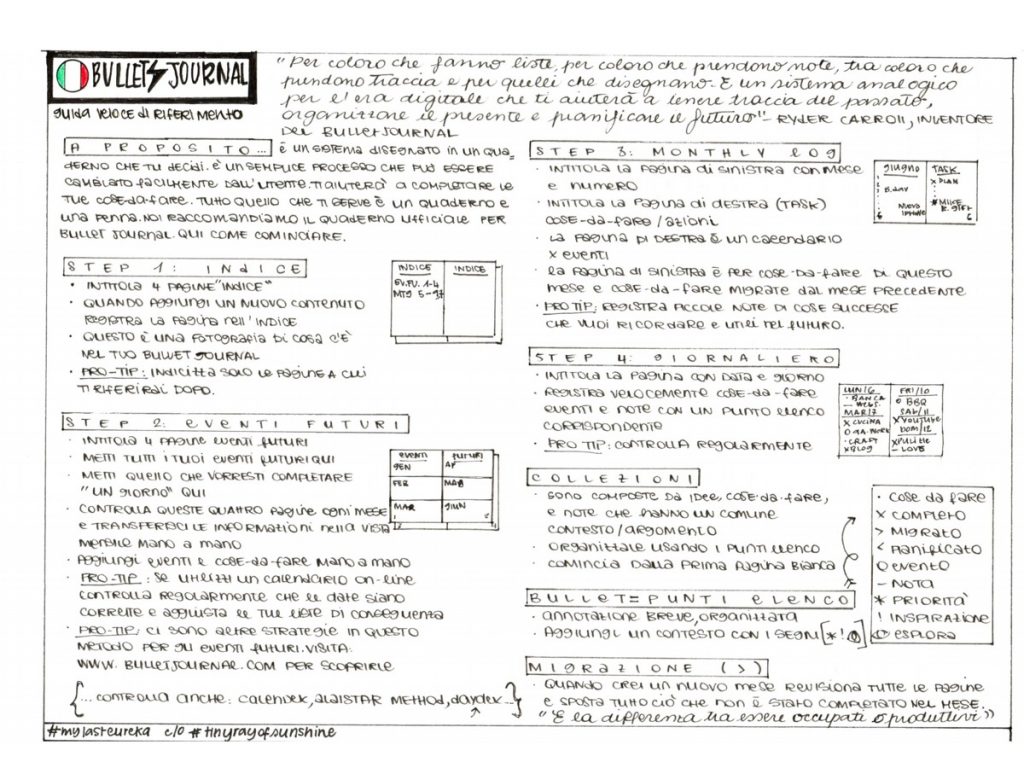 BULLET JOURNAL
GUIDA VELOCE DI RIFERIMENTO
"Per coloro che fanno liste, per coloro che prendono note, tra coloro che
prendono traccia e per quelli che disegnano. È un sistema analogico
per l'era digitale che ti aiuterà a tenere traccia del passato,
organizzare il presente e pianificare il futuro" - RYDER CARROLL, INVENTORE
DEL BULLET JOURNAL
A PROPOSITO... È UN SISTEMA DISEGNATO IN UN QUA-
DERNO CHE TU DECIDI. È UN SEMPLICE PROCESSO CHE PUÒ ESSERE
CAMBIATO FACILMENTE DALL'UTENTE. TI AIUTERÀ A COMPLETARE LE
TUE COSE-DA-FARE. TUTTO QUELLO CHE TI SERVE È UN QUADERNO E
UNA PENNA. NOI RACCOMANDIAMO IL QUADERNO UFFICIALE PER
BULLET JOURNAL. QUI COME COMINCIARE.
STEP 1: INDICE
• INTITOLA 4 PAGINE "INDICE"
• QUANDO AGGIUNGI UN NUOVO CONTENUTO
REGISTRA LA PAGINA NELL'INDICE
• QUESTO È UNA FOTOGRAFIA DI COSA C'È
NEL TUO BULLET JOURNAL
• PRO-TIP: INDICIZZA SOLO LE PAGINE A CUI
TI RIFERIRAI DOPO.
INDICE INDICE
EV.FU. 1-4
MTG 5-97
STEP 2: EVENTI FUTURI
• INTITOLA 4 PAGINE EVENTI FUTURI
• METTI TUTTI I TUOI EVENTI FUTURI QUI
• METTI QUELLO CHE VORRESTI COMPLETARE
"UN GIORNO" QUI
• CONTROLLA QUESTE QUATTRO PAGINE OGNI MESE
E TRANSFERISCI LE INFORMAZIONI NELLA VISTA
MENSILE MANO A MANO
• AGGIUNGI EVENTI E COSE-DA-FARE MANO A MANO
• PRO-TIP: SE UTILIZZI UN CALENDARIO ON-LINE
CONTROLLA REGOLARMENTE CHE LE DATE SIANO
CORRETTE E AGGIUSTA LE TUE LISTE DI CONSEGUENZA
• PRO-TIP: CI SONO ALTRE STRATEGIE IN QUESTO
METODO PER GLI EVENTI FUTURI. VISITA:
WWW.BULLETJOURNAL.COM PER SCOPRIRLE
EVENTI FUTURI
GEN AP
FEB MAG
MAR GIUN
{...CONTROLLA ANCHE: CALENDEX, ALAISTAR METHOD, DAYDEX...}
STEP 3: MONTHLY LOG
• INTITOLA LA PAGINA DI SINISTRA CON MESE
E NUMERO
• INTITOLA LA PAGINA DI DESTRA (TASK)
COSE-DA-FARE/AZIONI
• LA PAGINA DI DESTRA È UN CALENDARIO
X EVENTI
• LA PAGINA DI SINISTRA È PER COSE-DA-FARE DI QUESTO
MESE E COSE-DA-FARE MIGRATE DAL MESE PRECEDENTE
• PRO TIP: REGISTRA PICCOLE NOTE DI COSE SUCCESSE
CHE VUOI RICORDARE E UTILI NEL FUTURO.
GIUGNO TASK
B.DAY
X PLAN
NUOVO IPHONE
* MIKE B. GIFT
6 6
STEP 4: GIORNALIERO
• INTITOLA LA PAGINA CON DATA E GIORNO
• REGISTRA VELOCEMENTE COSE-DA-FARE
EVENTI E NOTE CON UN PUNTO ELENCO
CORRISPONDENTE
• PRO TIP: CONTROLLA REGOLARMENTE
LUN/6
• BANCA
MAR/7
X CUCINA
• CRAFT
X BLOG
FRI/10
O BBQ
SAB/11
X YOUTUBE
DOM/12
X PULIZIE
- LOVE
COLLEZIONI
• SONO COMPOSTE DA IDEE, COSE-DA-FARE,
E NOTE CHE HANNO UN COMUNE
CONTESTO/ARGOMENTO
• ORGANIZZALE USANDO I PUNTI ELENCO
• COMINCIA DALLA PRIMA PAGINA BIANCA
BULLET=PUNTI ELENCO
• ANNOTAZIONE BREVE, ORGANIZZATA
• AGGIUNGI UN CONTESTO CON I SEGNI [*!👁]
• COSE DA FARE
X COMPLETO
> MIGRATO
< PIANIFICATO
O EVENTO
- NOTA
* PRIORITÀ
! INSPIRAZIONE
👁 ESPLORA
MIGRAZIONE (>)
• QUANDO CREI UN NUOVO MESE REVISIONA TUTTE LE PAGINE
E SPOSTA TUTTO CIÒ CHE NON È STATO COMPLETATO NEL MESE.
"È la differenza tra essere occupati o produttivi"
#mylasteureka c/o #tinyrayofsunshine